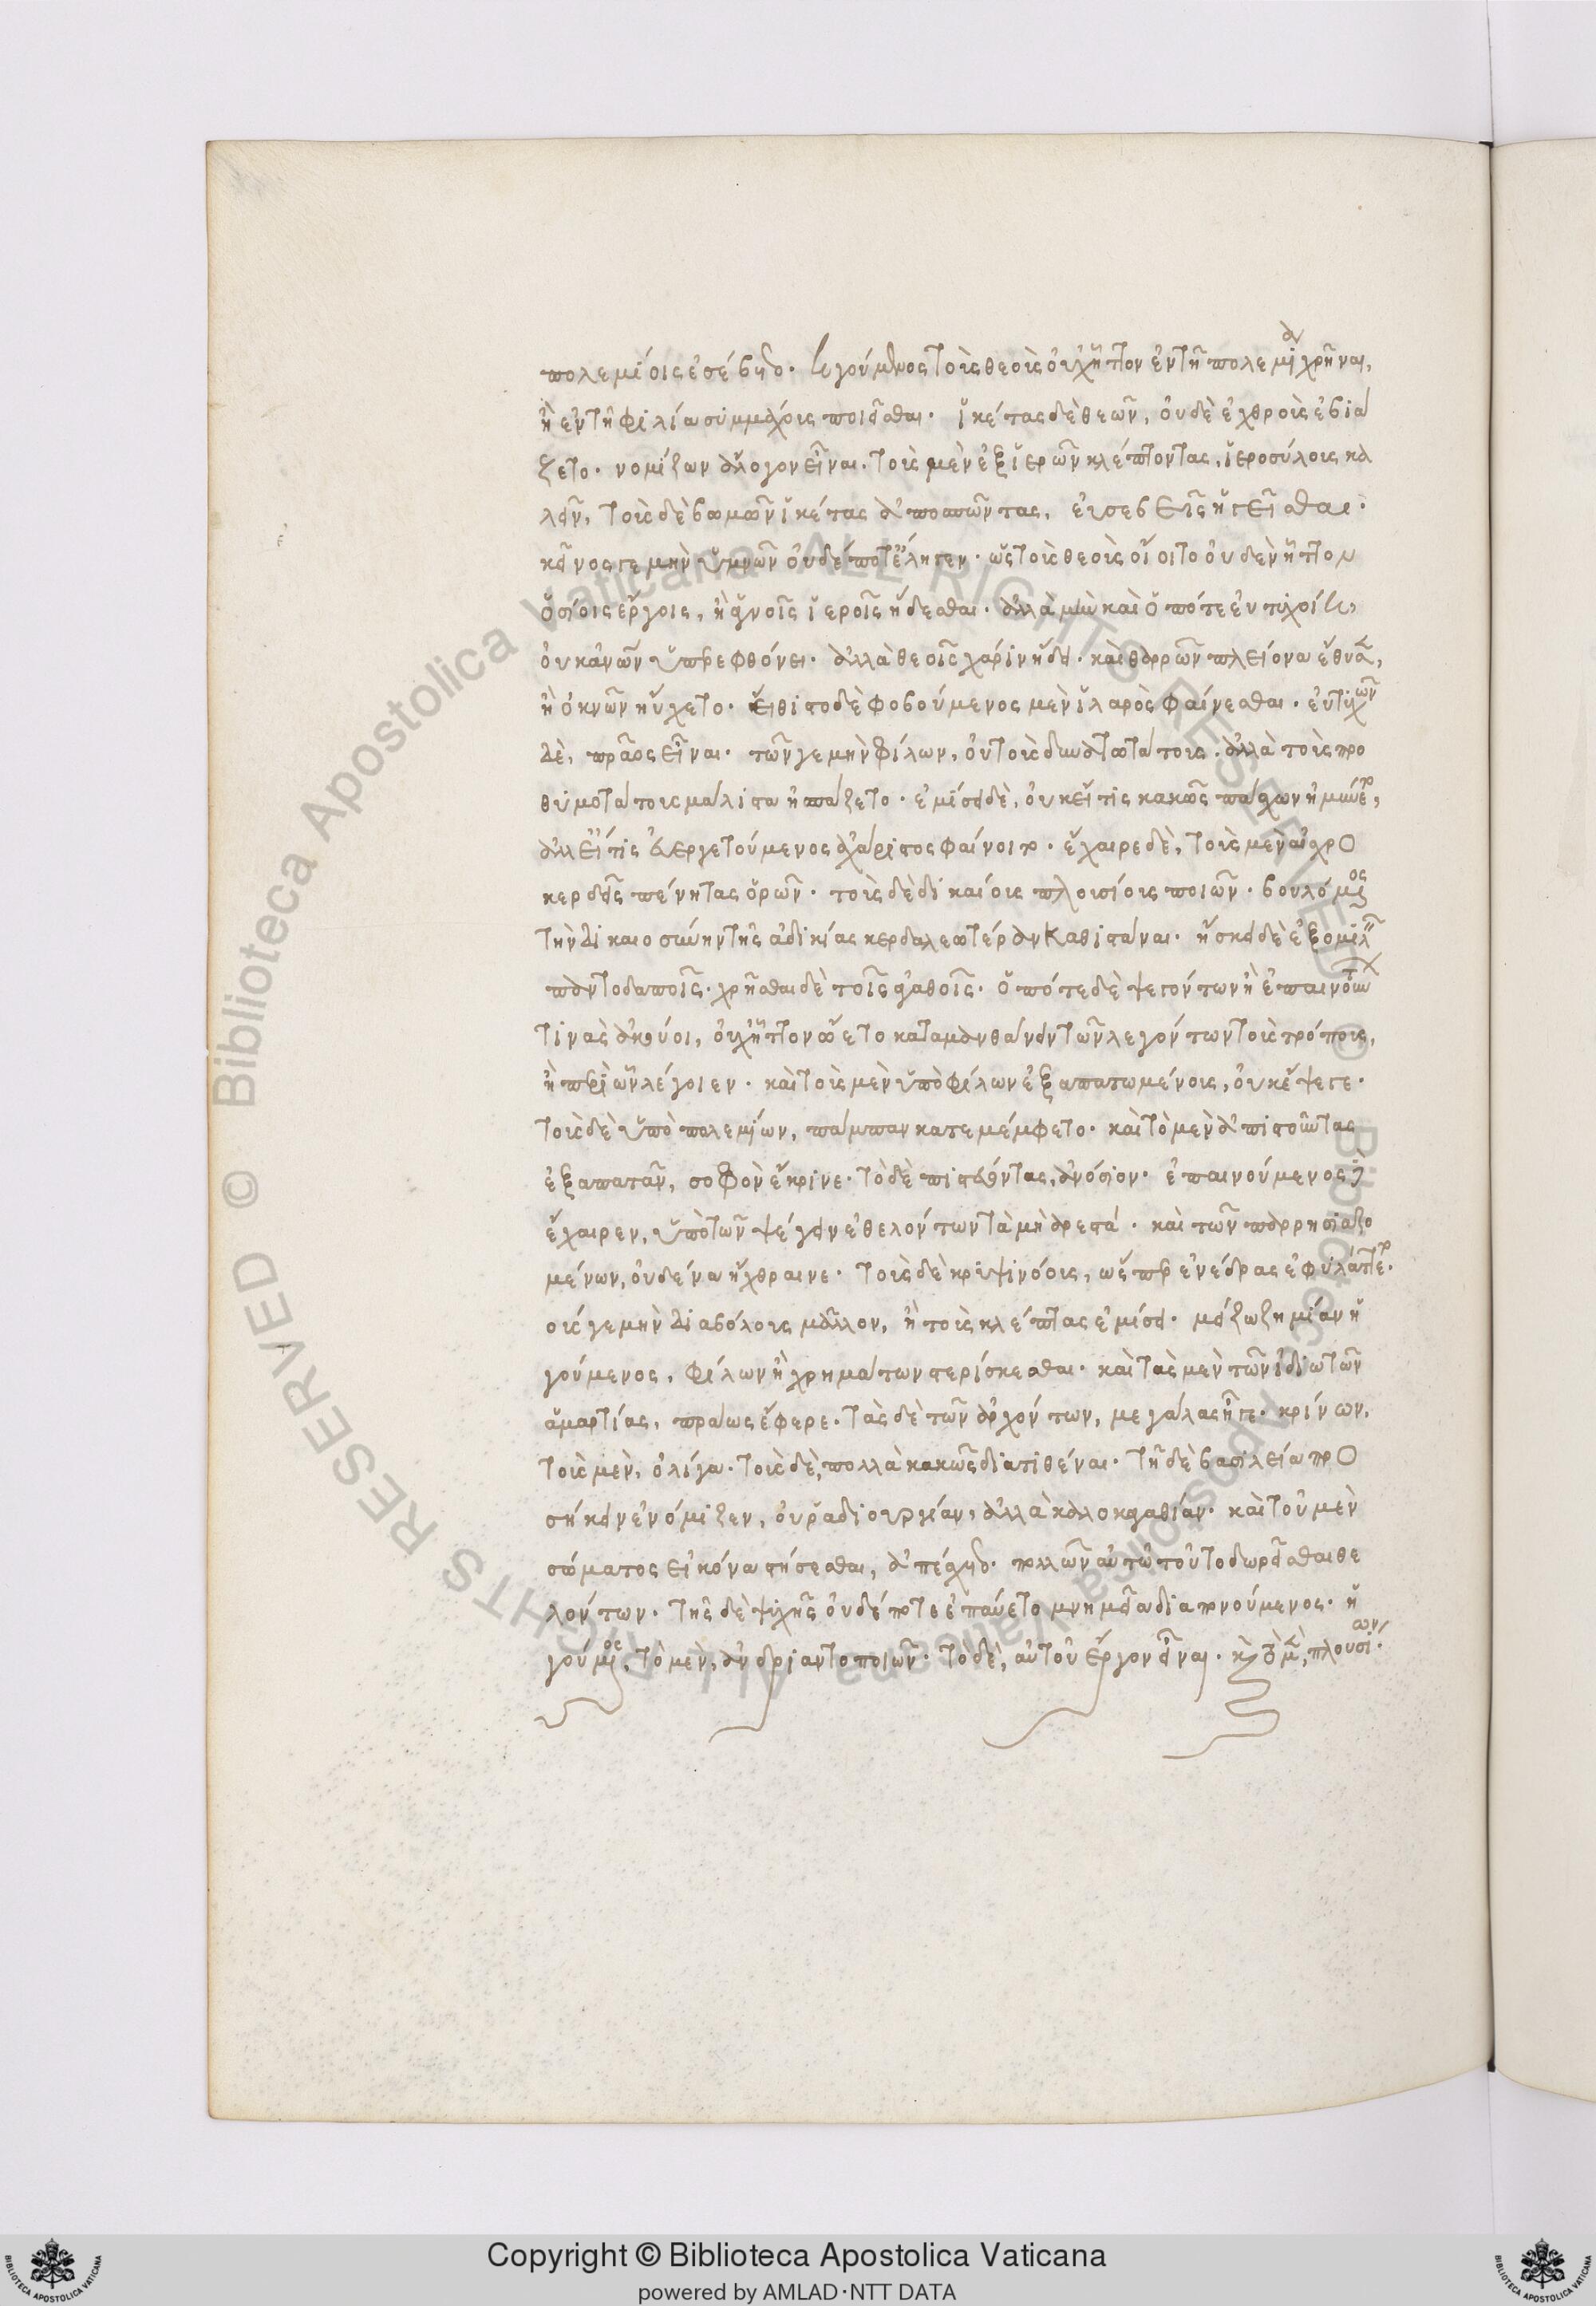 πολεμίοις ἐσέβετο· ἡγούμενος τοὺς θεοὺς οὐχ ἧττον ἐν τῆ πολεμία χρῆναι,
ἢ ἐν τῆ φιλία συμμάχους ποιεῖσθαι· ἱκέτας δὲ θεῶν, οὐδὲ ἐχθροὺς ἐβιά
ζετο· νομίζων ἄλογον εἶναι· τοὺς μὲν ἐξ ἱερῶν κλέπτοντας, ἱεροσύλους κα
λεῖν, τοὺς δὲ βωμῶν ἱκέτας ἀποσπῶντας, εὐσεβεῖς ἡγεῖσθαι·
κεῖνός γε μὴν ὑμνῶν οὐδέποτ' ἔληγεν· ὡς τοὺς θεοὺς οἴοιτο οὐδὲν ἧττον
ὁσίοις ἔργοις, ἢ ἁγνοῖς ἱεροῖς ἥδεσθαι· ἀλλὰ μὴν καὶ ὁπότε εὐτυχοίη,
οὐκ ἀνῶν ὑπερεφθόνει· ἀλλὰ θεοῖς χάριν ᾔδει· καὶ θαρρῶν πλείονα ἔθυεν,
ἢ ὀκνῶν ηὔχετο· εἴθιστο δὲ φοβούμενος μὲν ἱλαρὸς φαίνεσθαι· εὐτυχῶν
δὲ, πρᾶος εἶναι· τῶν γε μὴν φίλων, οὐ τοὺς δυνατωτάτους· ἀλλὰ τοὺς προ
θυμοτάτους μάλιστα ἠσπάζετο· ἐμίσει δὲ, οὐκ εἴ τις κακῶς πάσχων ἠμύνετο,
ἀλλ' εἴ τις εὐεργετούμενος ἀχάριστος φαίνοιτο· ἔχαιρε δὲ, τοὺς μὲν αἰσχρο
κερδεῖς πένητας ὁρῶν· τοὺς δὲ δικαίους πλουσίους ποιῶν· βουλόμενος
τὴν δικαιοσύνην τῆς ἀδικίας κερδαλεωτέραν καθιστάναι· ἤσκει δὲ ἐξομιλεῖν
παντοδαποῖς· χρῆσθαι δὲ τοῖς ἀγαθοῖς· ὁπότε δὲ ψεγόντων ἢ ἐπαινούντων
τινὰς ἀκούοι, οὐχ ἧττον ᾤετο καταμανθάνειν τῶν λεγόντων τοὺς τρόπους,
ἢ περὶ ὧν λέγοιεν· καὶ τοὺς μὲν ὑπὸ φίλων ἐξαπατωμένους, οὐκ ἔψεγε·
τοὺς δὲ ὑπὸ πολεμίων, πάμπαν κατεμέμφετο· καὶ τὸ μὲν ἀπιστοῦντας
ἐξαπατᾶν, σοφὸν ἔκρινε· τὸ δὲ πιστεύοντας, ἀνόσιον· ἐπαινούμενος δὲ
ἔχαιρεν, ὑπὸ τῶν ψέγειν ἐθελόντων τὰ μὴ ἀρεστά· καὶ τῶν παρρησιαζο
μένων, οὐδένα ἤχθραινε· τοὺς δὲ κρυψίνους, ὥσπερ ἐνέδρας ἐφυλάττετο·
τούς γε μὴν διαβόλους μᾶλλον, ἢ τοὺς κλέπτας ἐμίσει· μείζω ζημίαν ἡ
γούμενος, φίλων ἢ χρημάτων στερίσκεσθαι· καὶ τὰς μὲν τῶν ἰδιωτῶν
ἁμαρτίας, πράως ἔφερε· τὰς δὲ τῶν ἀρχόντων, μεγάλας ἦγε· κρίνων,
τοὺς μὲν, ὀλίγα· τοὺς δὲ, πολλὰ κακῶς διατιθέναι· τῆ δὲ βασιλεία προ
σήκειν ἐνόμιζεν, οὐ ῥαδιουργίαν, ἀλλὰ καλοκἀγαθίαν· καὶ τοῦ μὲν
σώματος εἰκόνα στήσεσθαι, ἀπέσχετο· πολλῶν αὐτῶ τοῦτο δωρεῖσθαι θε
λόντων· τῆς δὲ ψυχῆς οὐδέποτε ἐπαύετο μνημεῖα διαπονούμενος· ἡ
γούμενος, τὸ μὲν, ἀνδριαντοποιῶν· τὸ δὲ, αὑτοῦ ἔργον εἶναι· καὶ τὸ μὲν, πλουσίων·
© Biblioteca Apostolica Vaticana ALL RIGHTS RESERVED
Copyright © Biblioteca Apostolica Vaticana
powered by AMLAD·NTT DATA
BIBLIOTECA APOSTOLICA VATICANA
BIBLIOTECA APOSTOLICA VATICANA